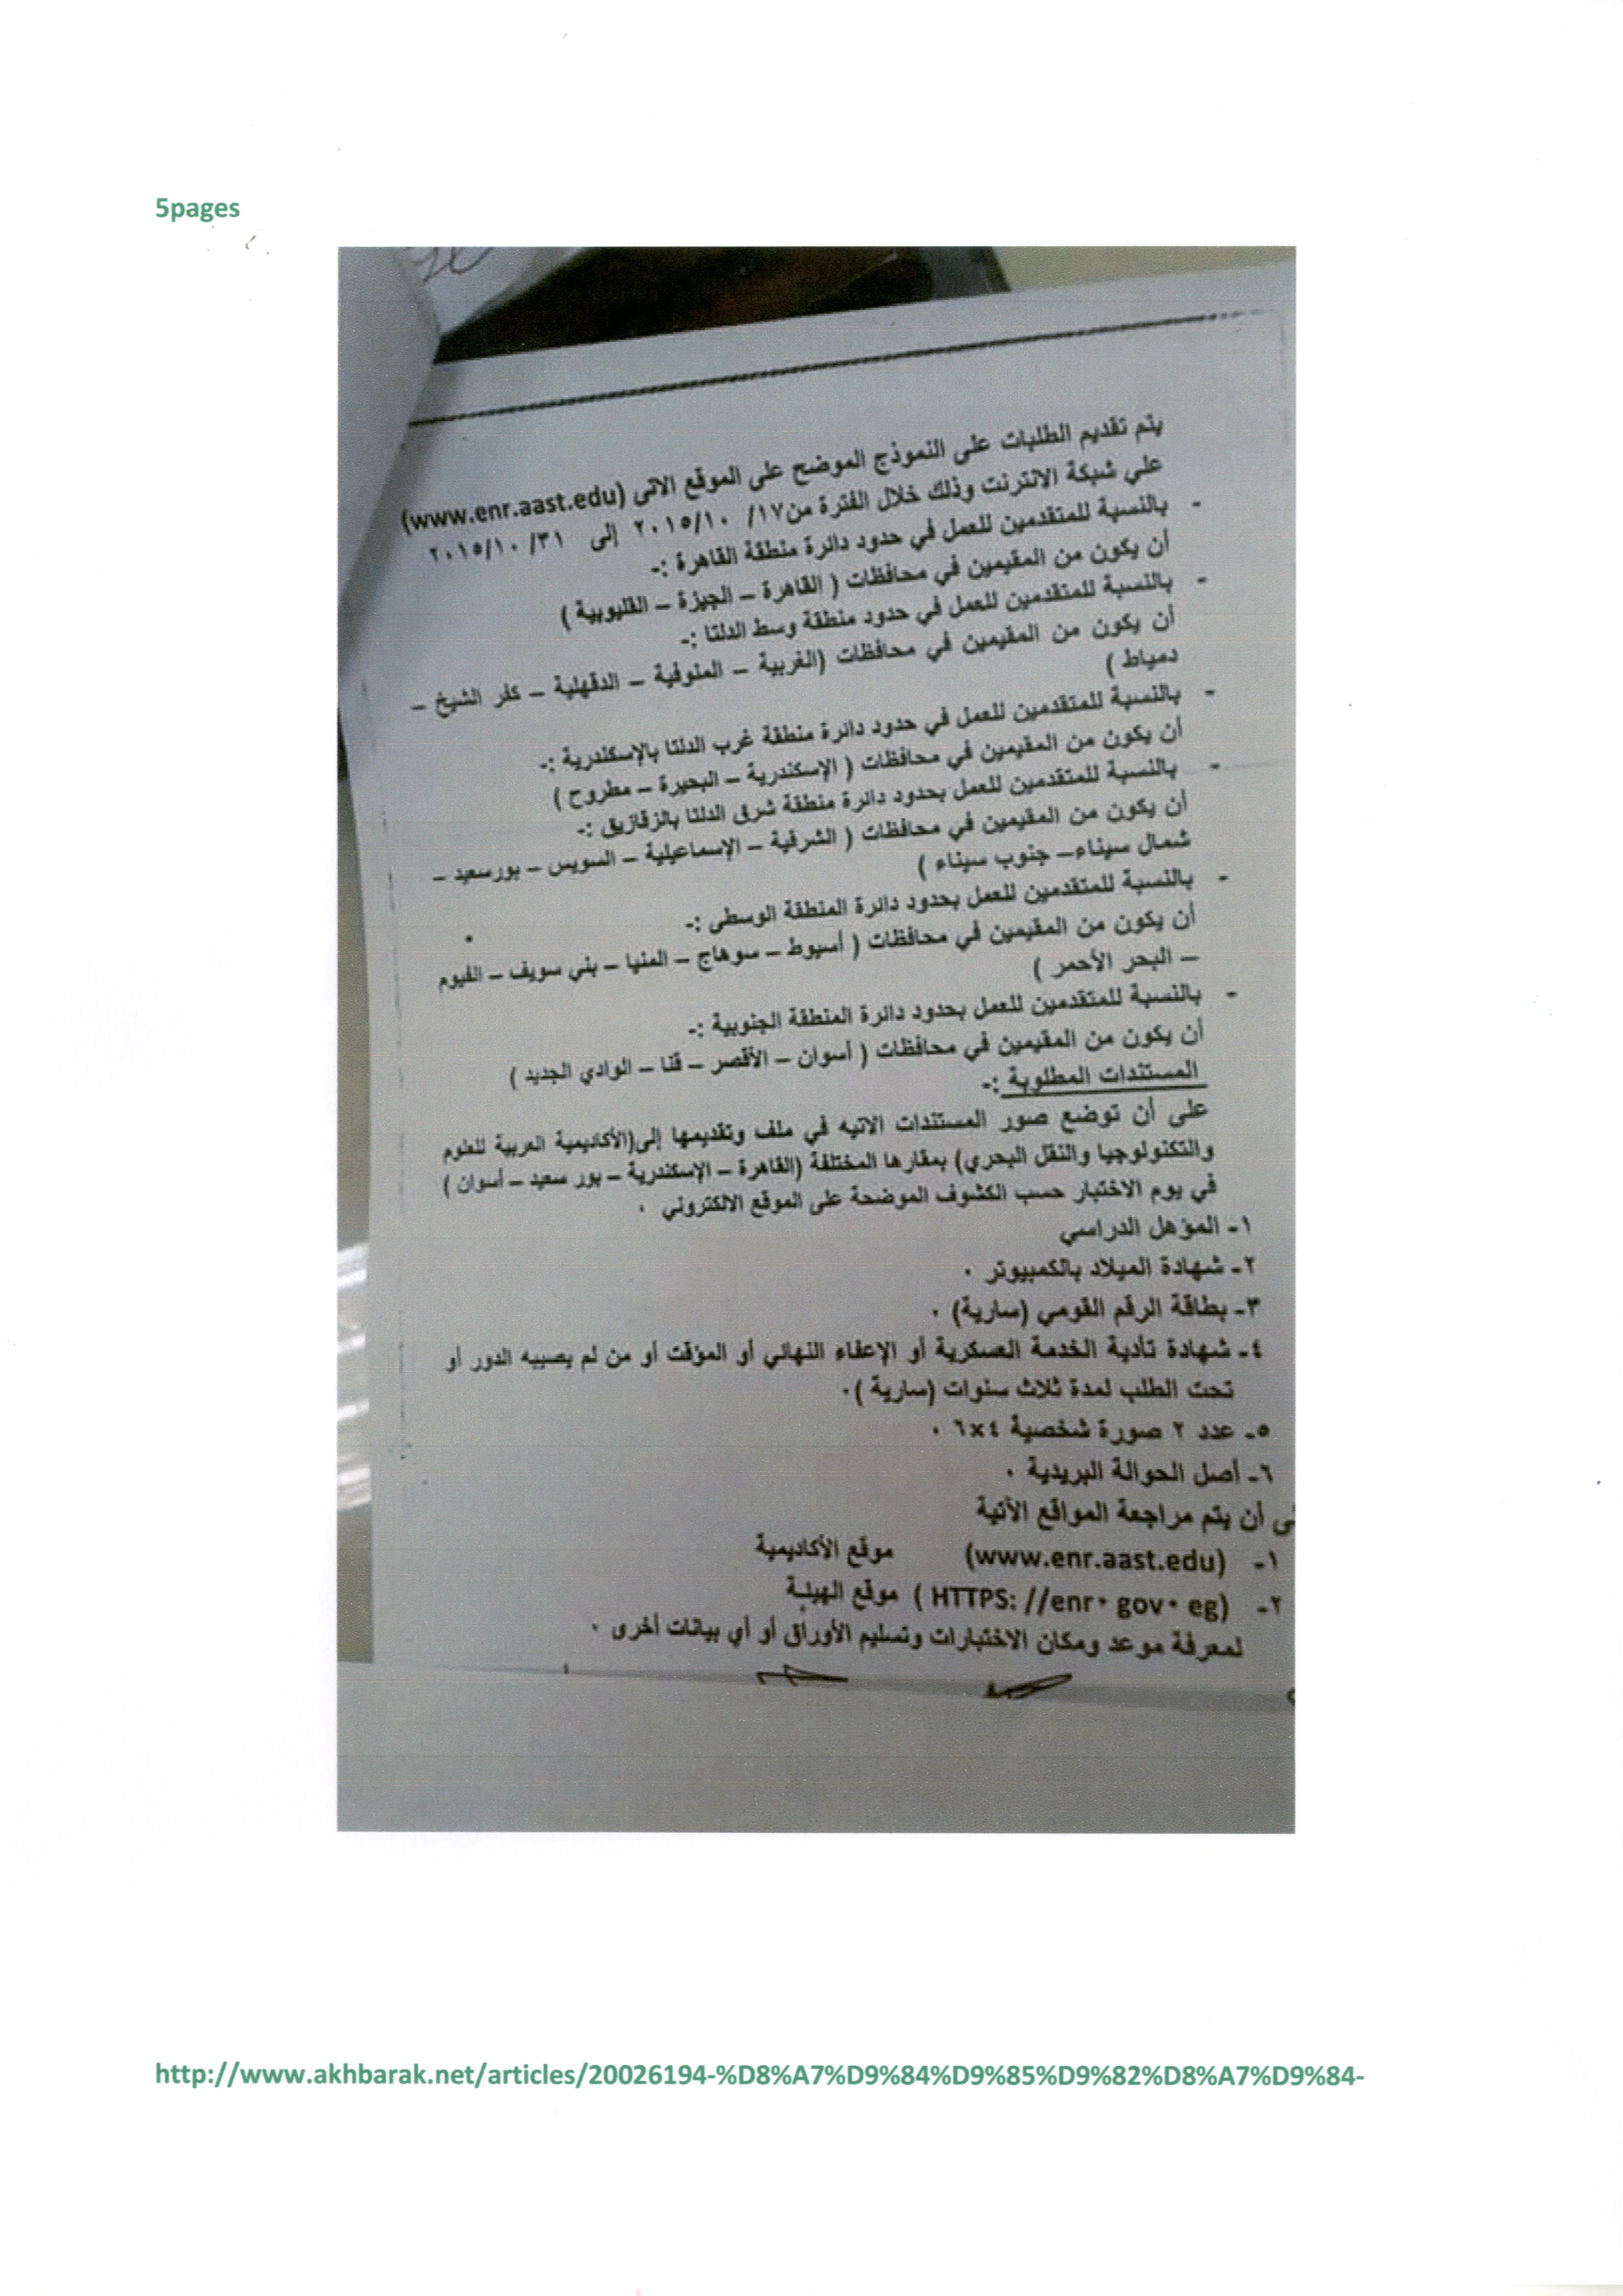 5pages
يتم تقديم الطلبات على النموذج الموضح على الموقع الاتى (www.enr.aast.edu)
علي شبكة الانترنت وذلك خلال الفترة من١٧/ ٢٠١٥/١٠ إلى ٢٠١٥/١٠/٣١
- بالنسبة للمتقدمين للعمل في حدود دائرة منطقة القاهرة :-
أن يكون من المقيمين في محافظات ( القاهرة – الجيزة – القليوبية )
- بالنسبة للمتقدمين للعمل في حدود منطقة وسط الدلتا :-
أن يكون من المقيمين في محافظات (الغربية – المنوفية – الدقهلية – كفر الشيخ –
دمياط )
- بالنسبة للمتقدمين للعمل في حدود دائرة منطقة غرب الدلتا بالإسكندرية :-
أن يكون من المقيمين في محافظات ( الإسكندرية – البحيرة – مطروح )
- بالنسبة للمتقدمين للعمل بحدود دائرة منطقة شرق الدلتا بالزقازيق :-
أن يكون من المقيمين في محافظات ( الشرقية – الإسماعيلية – السويس – بورسعيد –
شمال سيناء– جنوب سيناء )
- بالنسبة للمتقدمين للعمل بحدود دائرة المنطقة الوسطى :-
أن يكون من المقيمين في محافظات ( أسيوط – سوهاج – المنيا – بني سويف – الفيوم
– البحر الأحمر )
- بالنسبة للمتقدمين للعمل بحدود دائرة المنطقة الجنوبية :-
أن يكون من المقيمين في محافظات ( أسوان – الأقصر – قنا – الوادي الجديد )
المستندات المطلوبة :-
على أن توضع صور المستندات الاتيه في ملف وتقديمها إلى(الأكاديمية العربية للعلوم
والتكنولوجيا والنقل البحري) بمقارها المختلفة (القاهرة – الإسكندرية – بور سعيد – أسوان )
في يوم الاختبار حسب الكشوف الموضحة على الموقع الالكتروني .
١- المؤهل الدراسي
٢- شهادة الميلاد بالكمبيوتر .
٣- بطاقة الرقم القومي (سارية) .
٤- شهادة تأدية الخدمة العسكرية أو الإعفاء النهائي أو المؤقت أو من لم يصيبه الدور أو
تحت الطلب لمدة ثلاث سنوات (سارية ).
٥- عدد ٢ صورة شخصية ٤×٦ .
٦- أصل الحوالة البريدية .
لى أن يتم مراجعة المواقع الآتية
١- (www.enr.aast.edu) موقع الأكاديمية
٢- (HTTPS: //enr• gov• eg ) موقع الهيئة
لمعرفة موعد ومكان الاختبارات وتسليم الأوراق أو أي بيانات أخرى .
http://www.akhbarak.net/articles/20026194-%D8%A7%D9%84%D9%85%D9%82%D8%A7%D9%84-